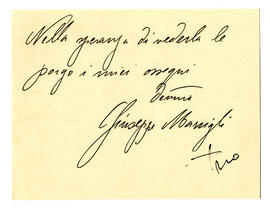 Nella speranza di vederla le
porgo i miei ossequi
devmo
Giuseppe Marsigli